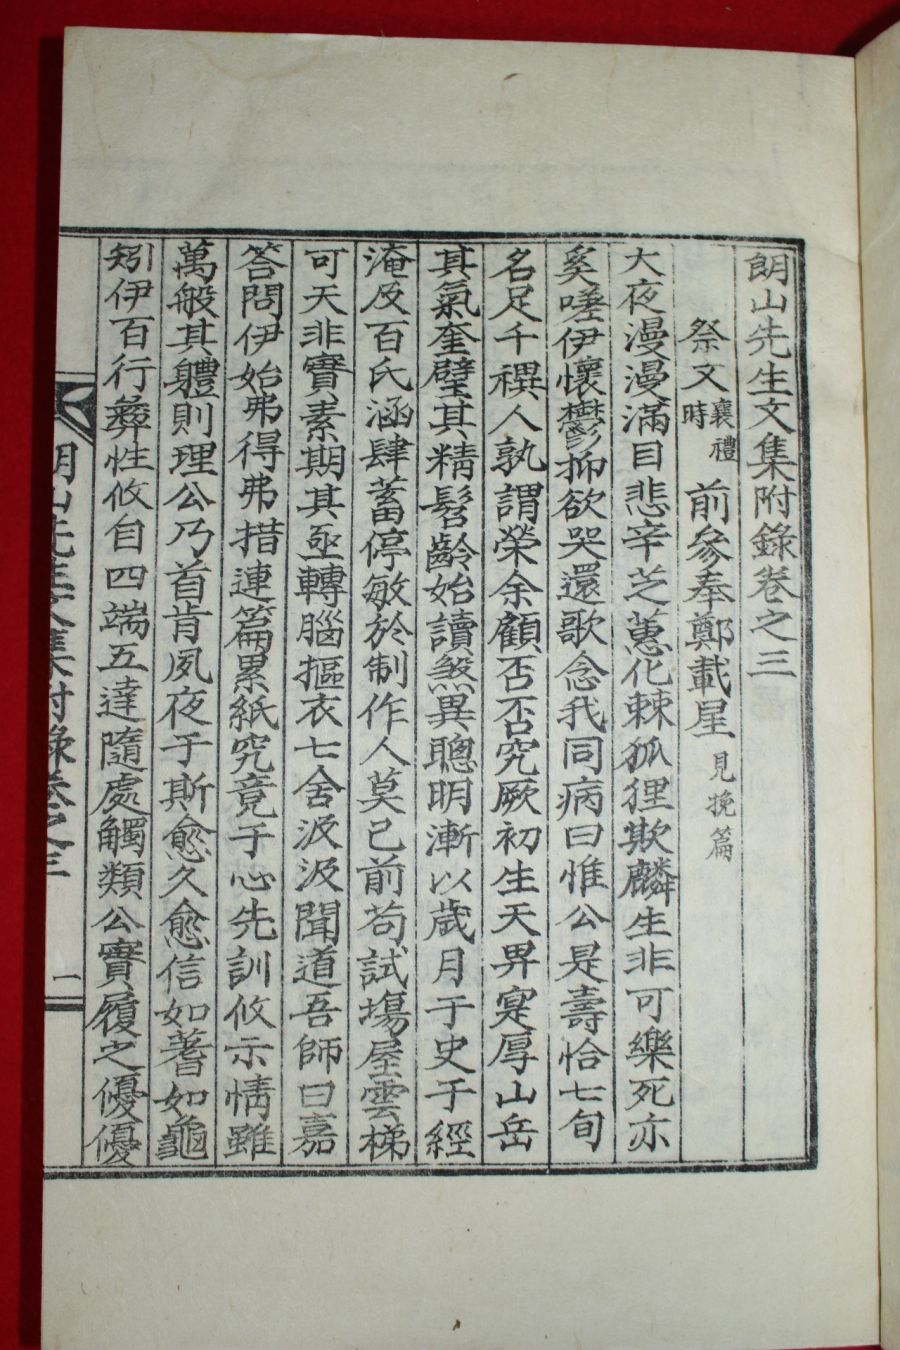 朗山先生文集附錄卷之三
祭文 襄禮時 前參奉鄭載星 見挽篇
大夜漫漫滿目悲辛芝蕙化棘狐狸欺麟生非可樂死亦
奚嗟伊懷鬱抑欲哭還歌念我同病曰惟公是壽恰七旬
名足千禩人孰謂榮余顧否否究厥初生天畀寔厚山岳
其氣奎璧其精髫齡始讀煞異聰明漸以歲月于史于經
淹及百氏涵肆蓄停敏於制作人莫己前苟試場屋雲梯
可天非實素期其亟轉腦摳衣七舍汲汲聞道吾師曰嘉
答問伊始弗得弗措連篇累紙究竟于心先訓攸示情雖
萬般其軆則理公乃首肯夙夜于斯愈久愈信如蓍如龜
矧伊百行彜性攸自四端五達隨處觸類公實履之優優
朗山先生文集附錄卷之三 一